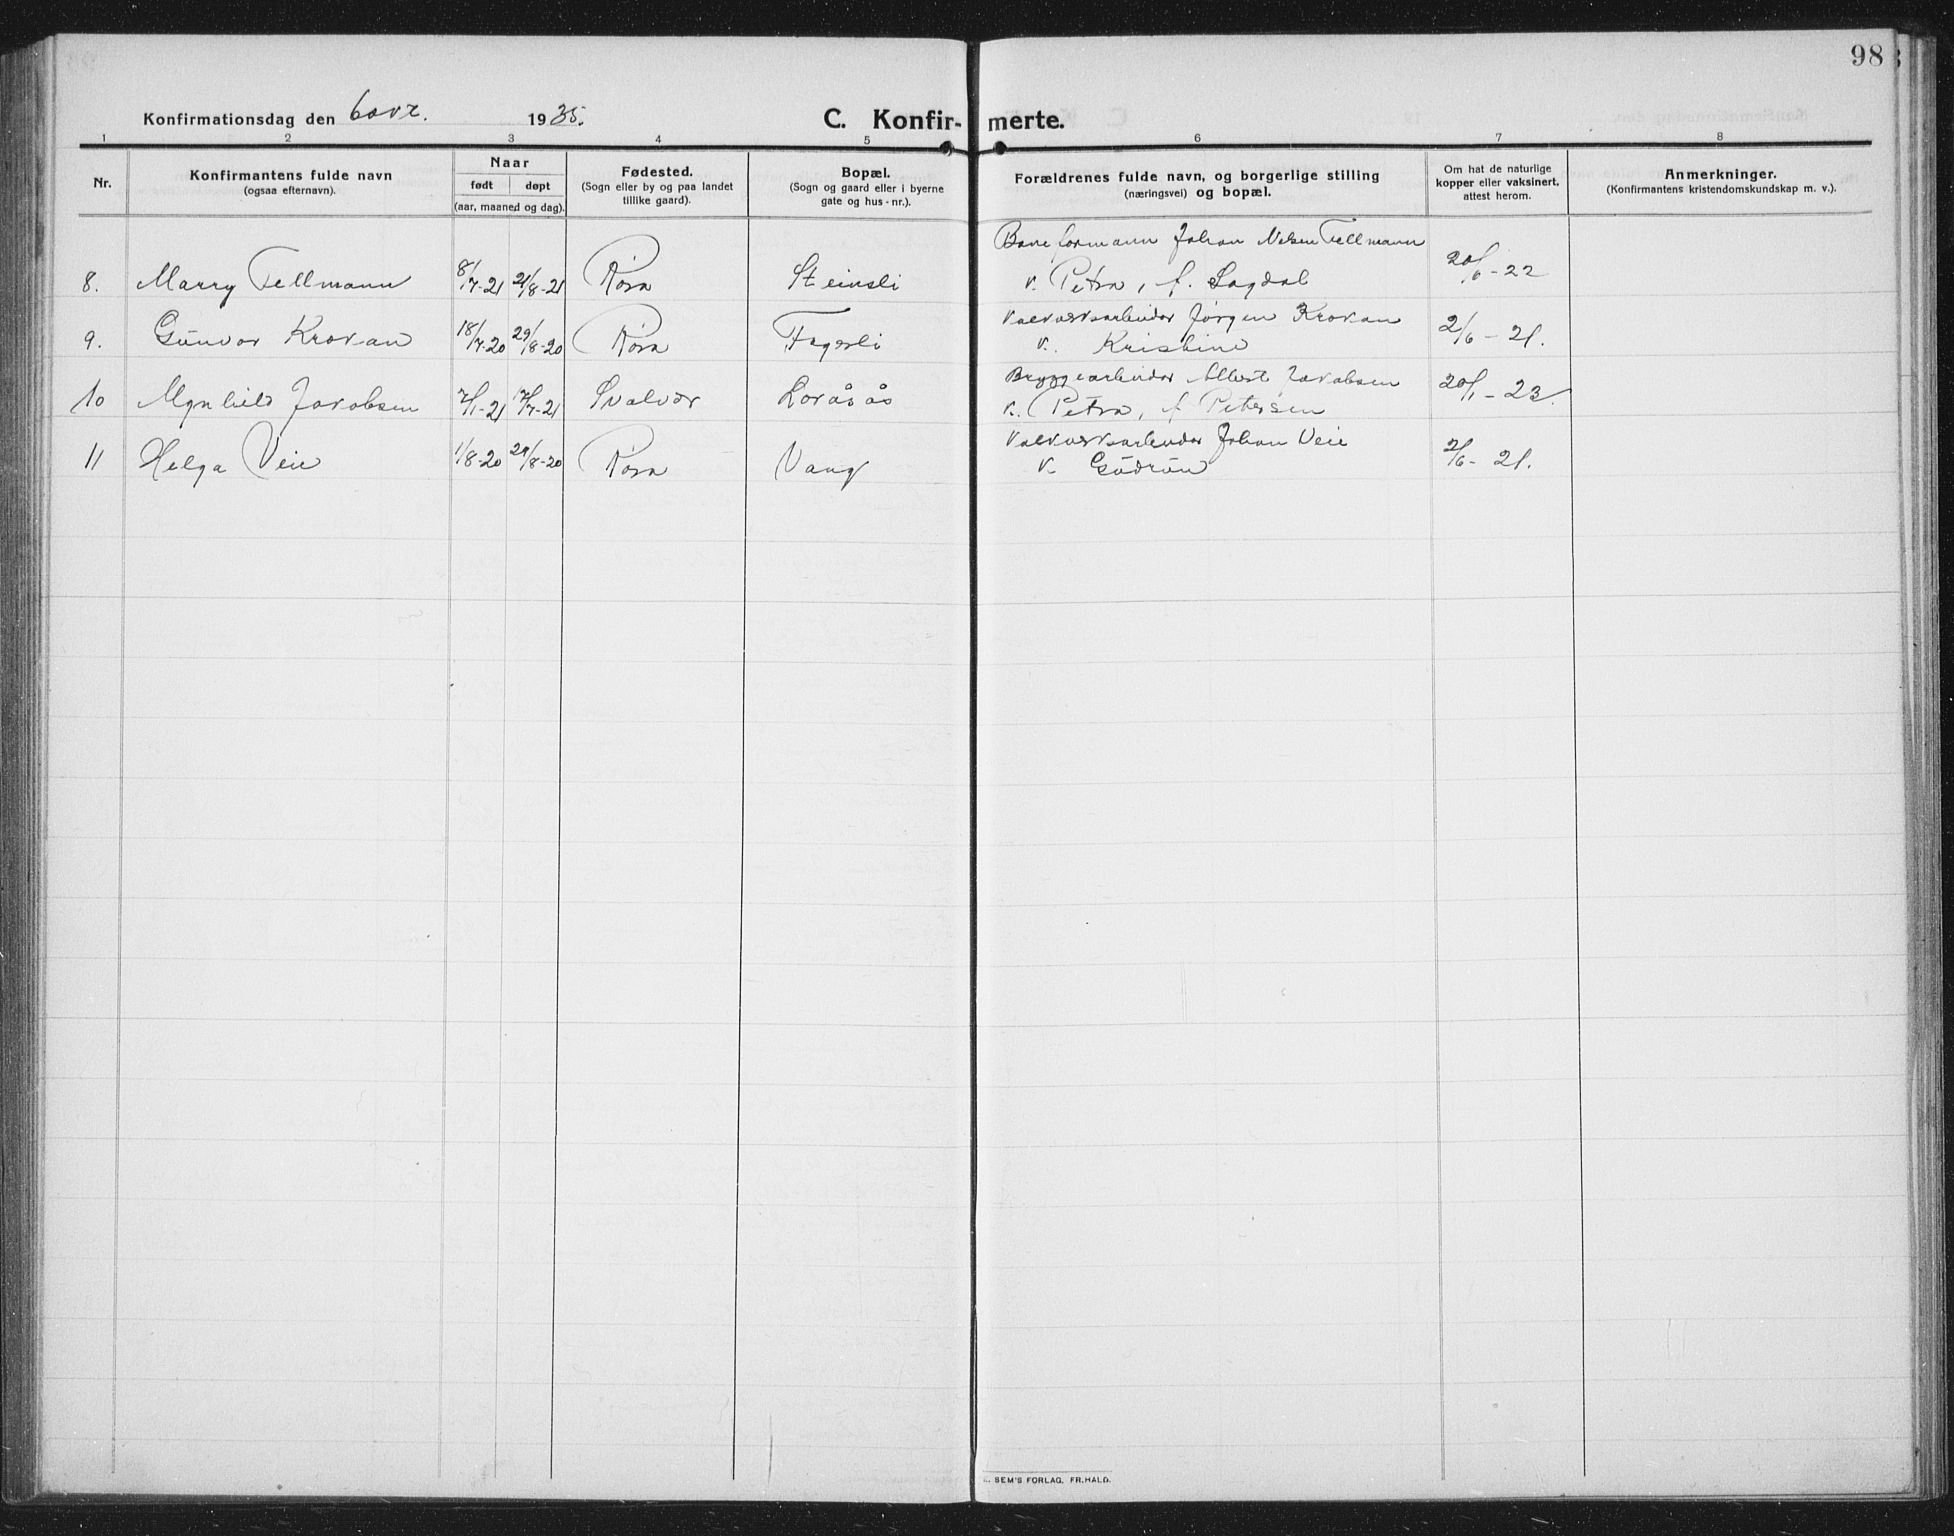 98
Konfirmationsdag den 6 okt. 1935.
C. Konfir- merte.
1 2 3 4 5 6 7 8
Nr.
Konfirmantens fulde navn
(ogsaa efternavn).
Naar
født døpt
(aar, maaned og dag).
Fødested.
(Sogn eller by og paa landet
tillike gaard).
Bopæl.
(Sogn og gaard eller i byerne
gate og hus-nr.).
Forældrenes fulde navn, og borgerlige stilling
(næringsvei) og bopæl.
Om hat de naturlige
kopper eller vaksinert,
attest herom.
Anmerkninger.
(Konfirmantens kristendomskundskap m. v.).
Baneformann Johan Nelsen Tellmann
8. Marry Tellmann 8/7-21 21/8-21 Røra Steinsli k. Petra, f. Sagdal 20/6-22
Kalkverksarbeider Jørgen Krokan
9. Gunvor Krokan 18/7-20 29/8-20 Røra Fagerli k. Kristine 2/6-21.
Bryggearbeider Albert Jakobsen
10 Magnhild Jakobsen 7/1-21 17/7-21 Svolvær Loråsås k. Petra, f. Petersen 20/1-23.
Kalkverksarbeider Johan Veie
11 Helga Veie 1/8-20 29/8-20 Røra Vang k. Gudrun 2/6-21.
SEM'S FORLAG, FR.HALD.